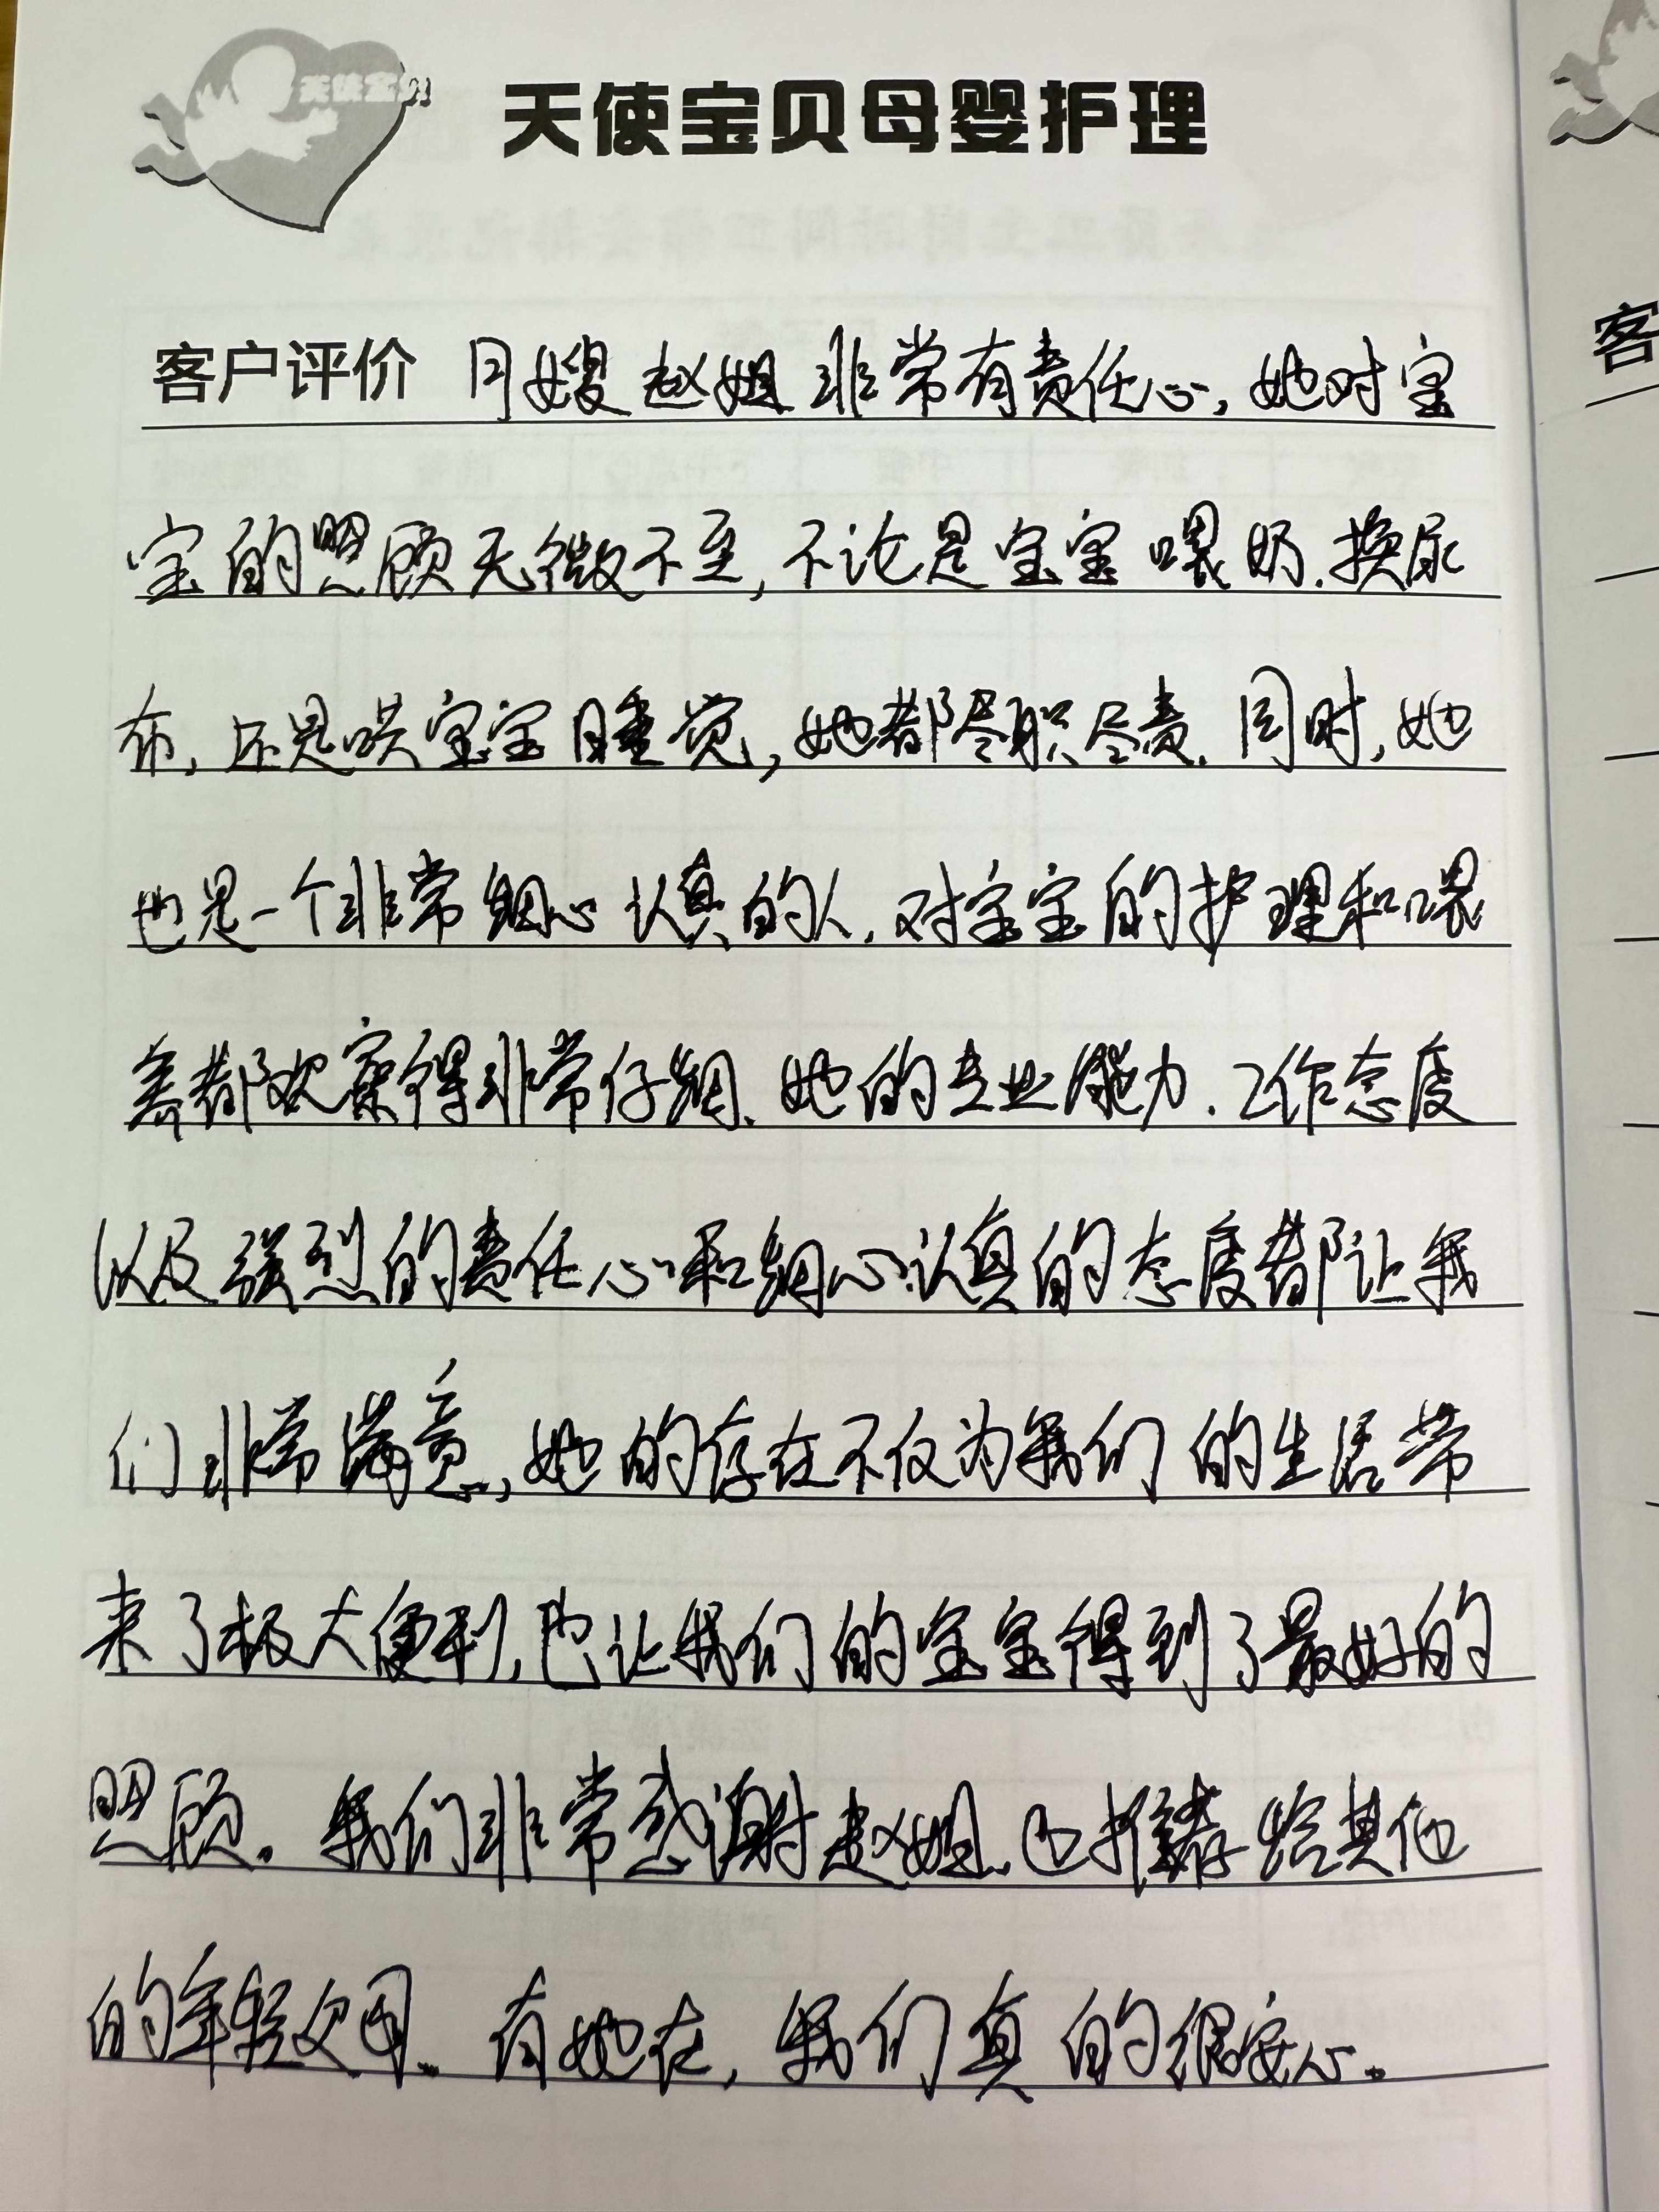 天使宝贝
天使宝贝母婴护理
客户评价 月嫂赵姐非常有责任心,她对宝
宝的照顾无微不至,不论是宝宝喂奶.换尿
布,还是哄宝宝睡觉,她都尽职尽责.同时,她
也是一个非常细心认真的人.对宝宝的护理和喂
养都观察得非常仔细.她的专业能力.工作态度
以及强烈的责任心和细心认真的态度都让我
们非常满意,她的存在不仅为我们的生活带
来了极大便利,也让我们的宝宝得到了最好的
照顾。我们非常感谢赵姐.也推荐给其他
的年轻父母.有她在,我们真的很安心。
客